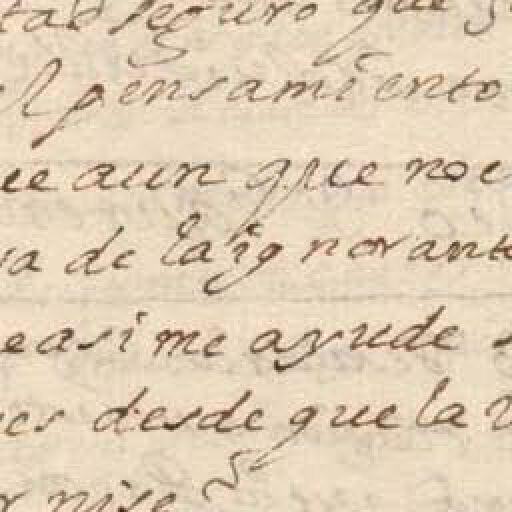 tad seguro que
el pensamiento
ue aun que no e
va de la ignorante
easi me ayude
es desde que la v
r nise